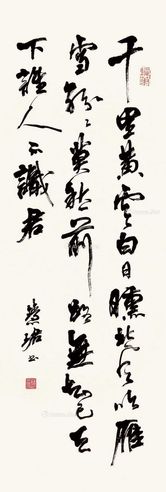 千里黄雲白日曛北風吹雁
雪紛〻莫愁前路無知己天
下誰人不識君
慧珺书